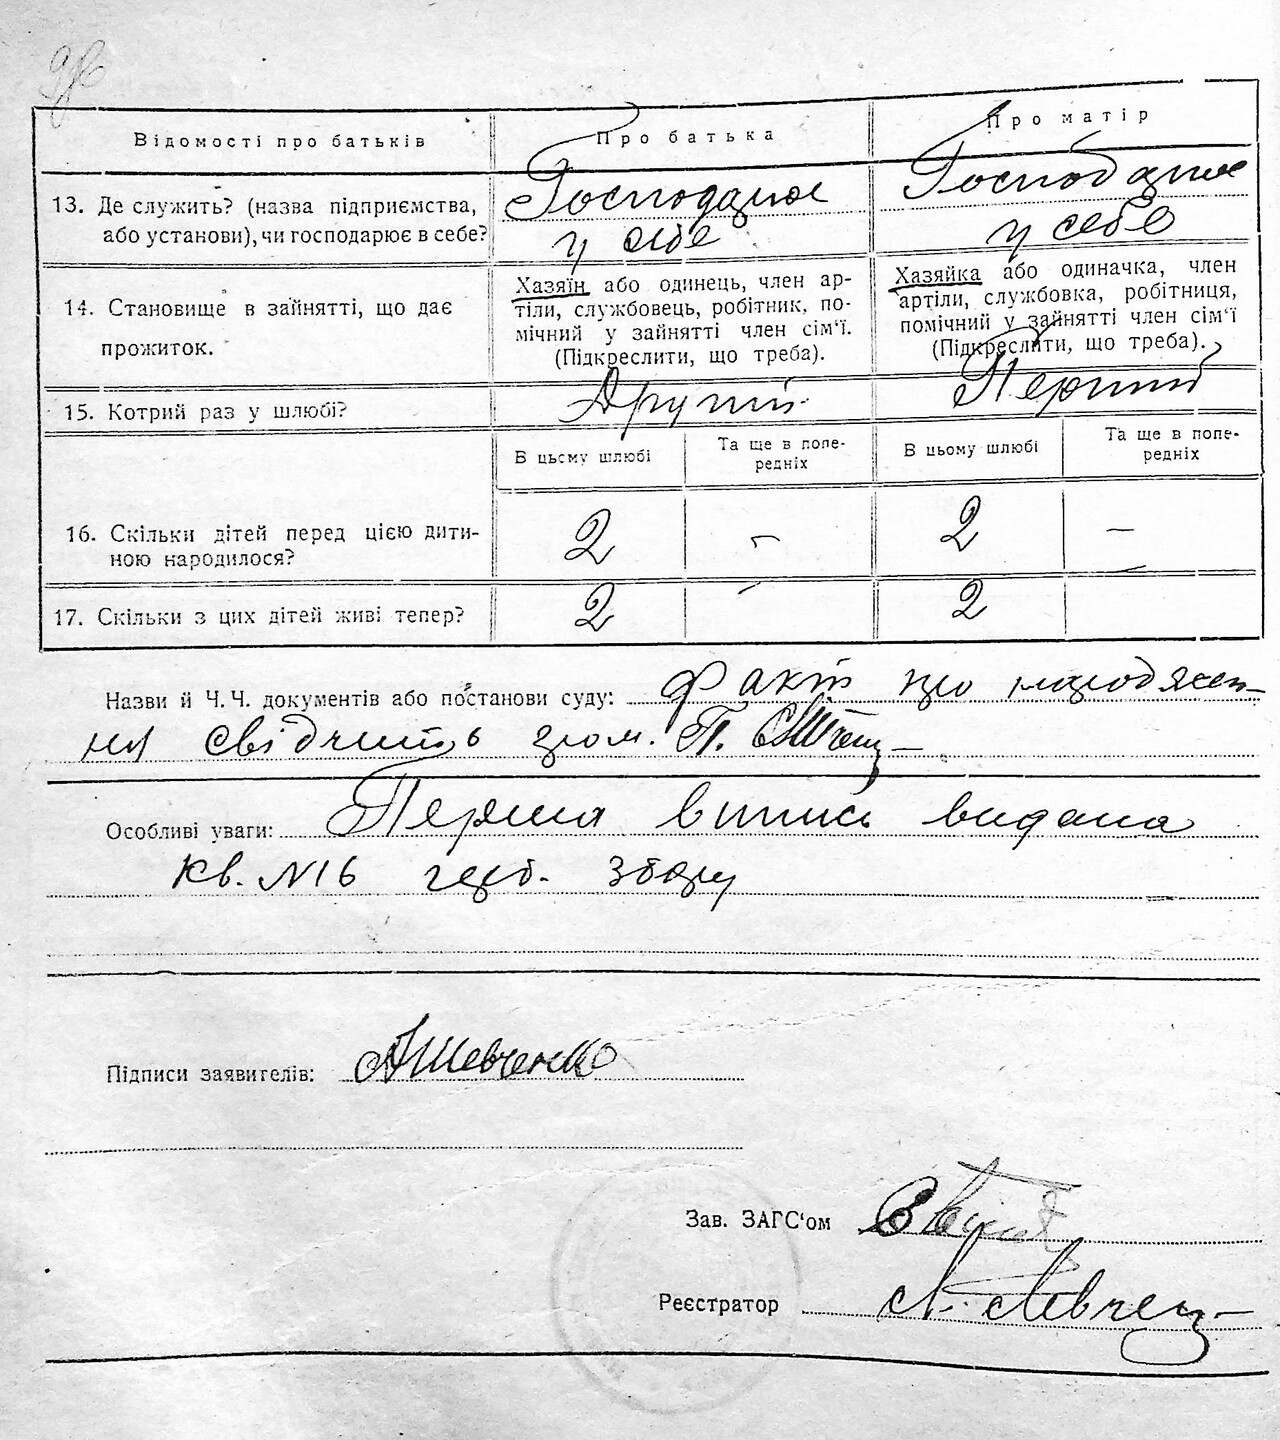 Відомості про батьків
Про батька
Про матір
13. Де служить? (назва підприємства,
або установи), чи господарює в себе?
Господарює
у себе
Господарює
у себе
14. Становище в зайнятті, що дає
прожиток.
Хазяїн або одинець, член ар-
тілі, службовець, робітник, по-
мічний у зайнятті член сім'ї.
(Підкреслити, що треба).
Хазяйка або одиначка, член
артілі, службовка, робітниця,
помічний у зайнятті член сім'ї
(Підкреслити, що треба).
15. Котрий раз у шлюбі?
Другий
Перший
В цьому шлюбі
Та ще в попе-
редніх
В цьому шлюбі
Та ще в попе-
редніх
16. Скільки дітей перед цією дити-
ною народилося?
2
-
2
-
17. Скільки з цих дітей живі тепер?
2
-
2
-
Назви й Ч. Ч. документів або постанови суду: Факт про народжен-
ня свідчить гром. П.
Особливі уваги: Перша випись видана
кв. №16 герб. збору
Підписи заявителів: А Шевченко
Зав. ЗАГС'ом
Реєстратор Л.